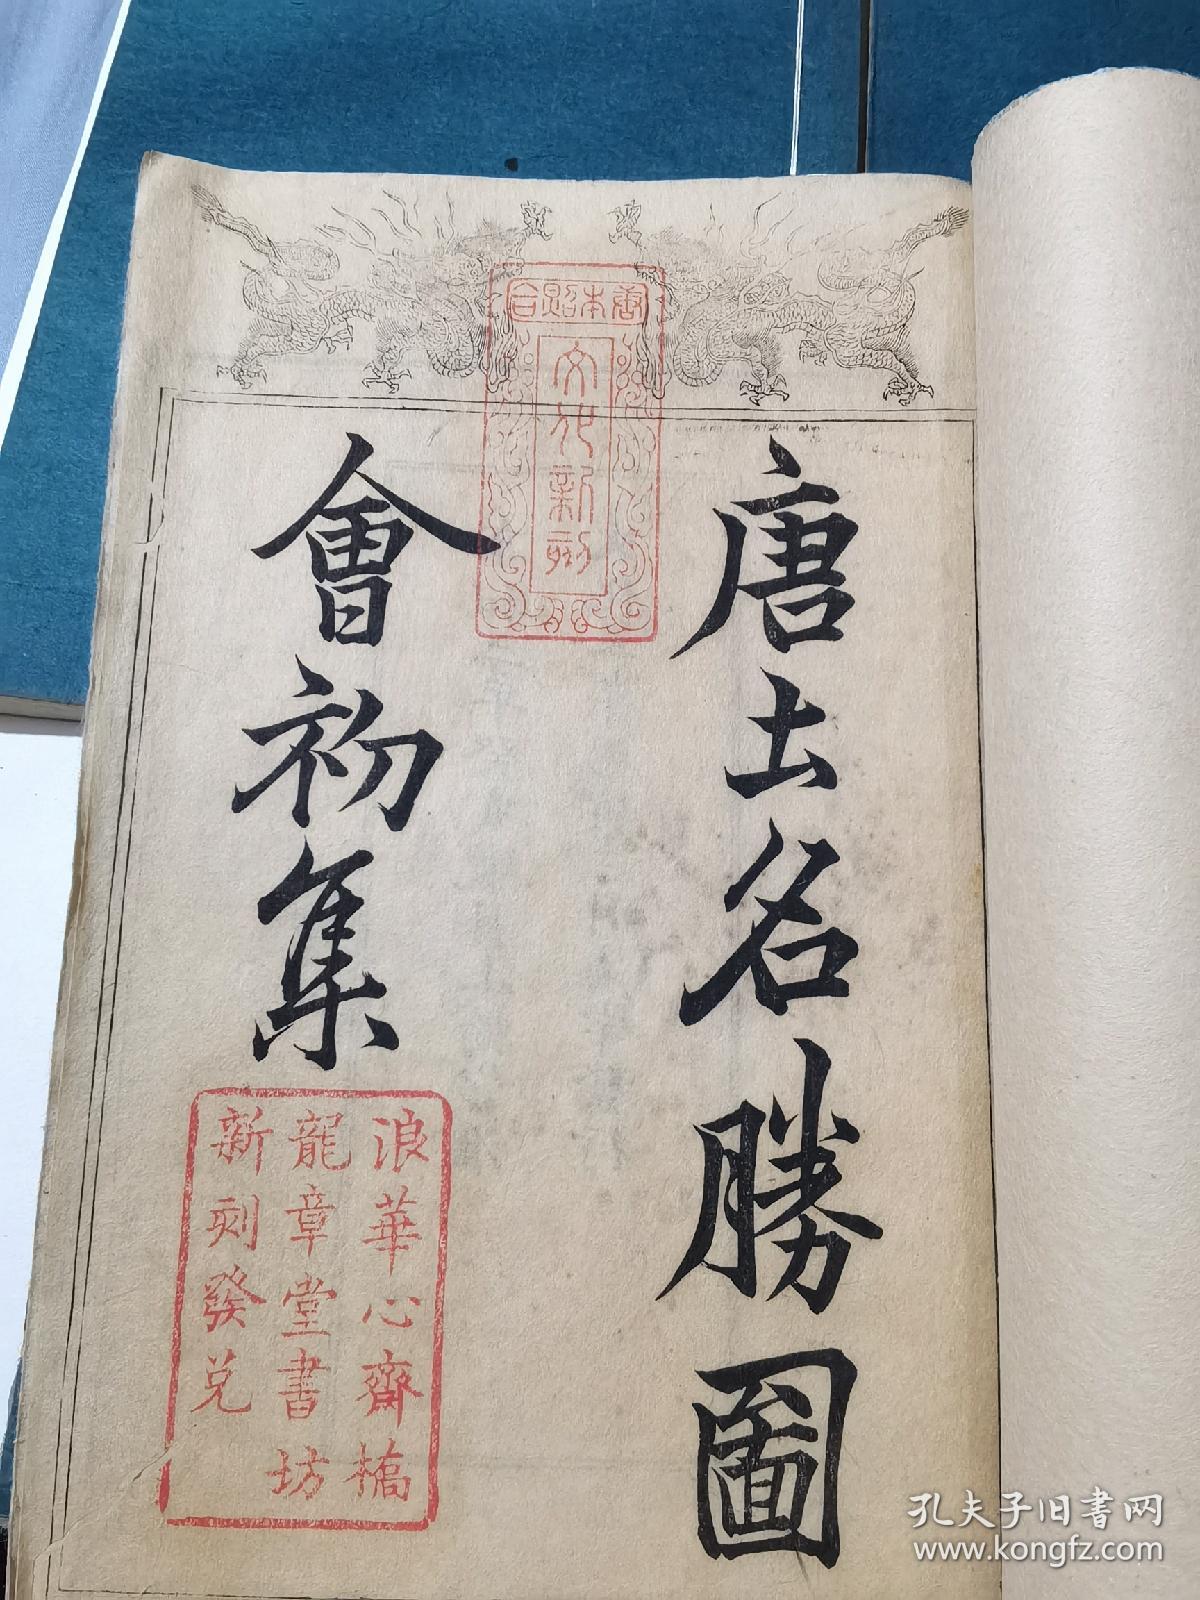 唐土名勝圖
會初集
唐本照合
文化新刻
浪華心齋橋
龍章堂書坊
新刻發兌
孔夫子旧书网
www.kongfz.com